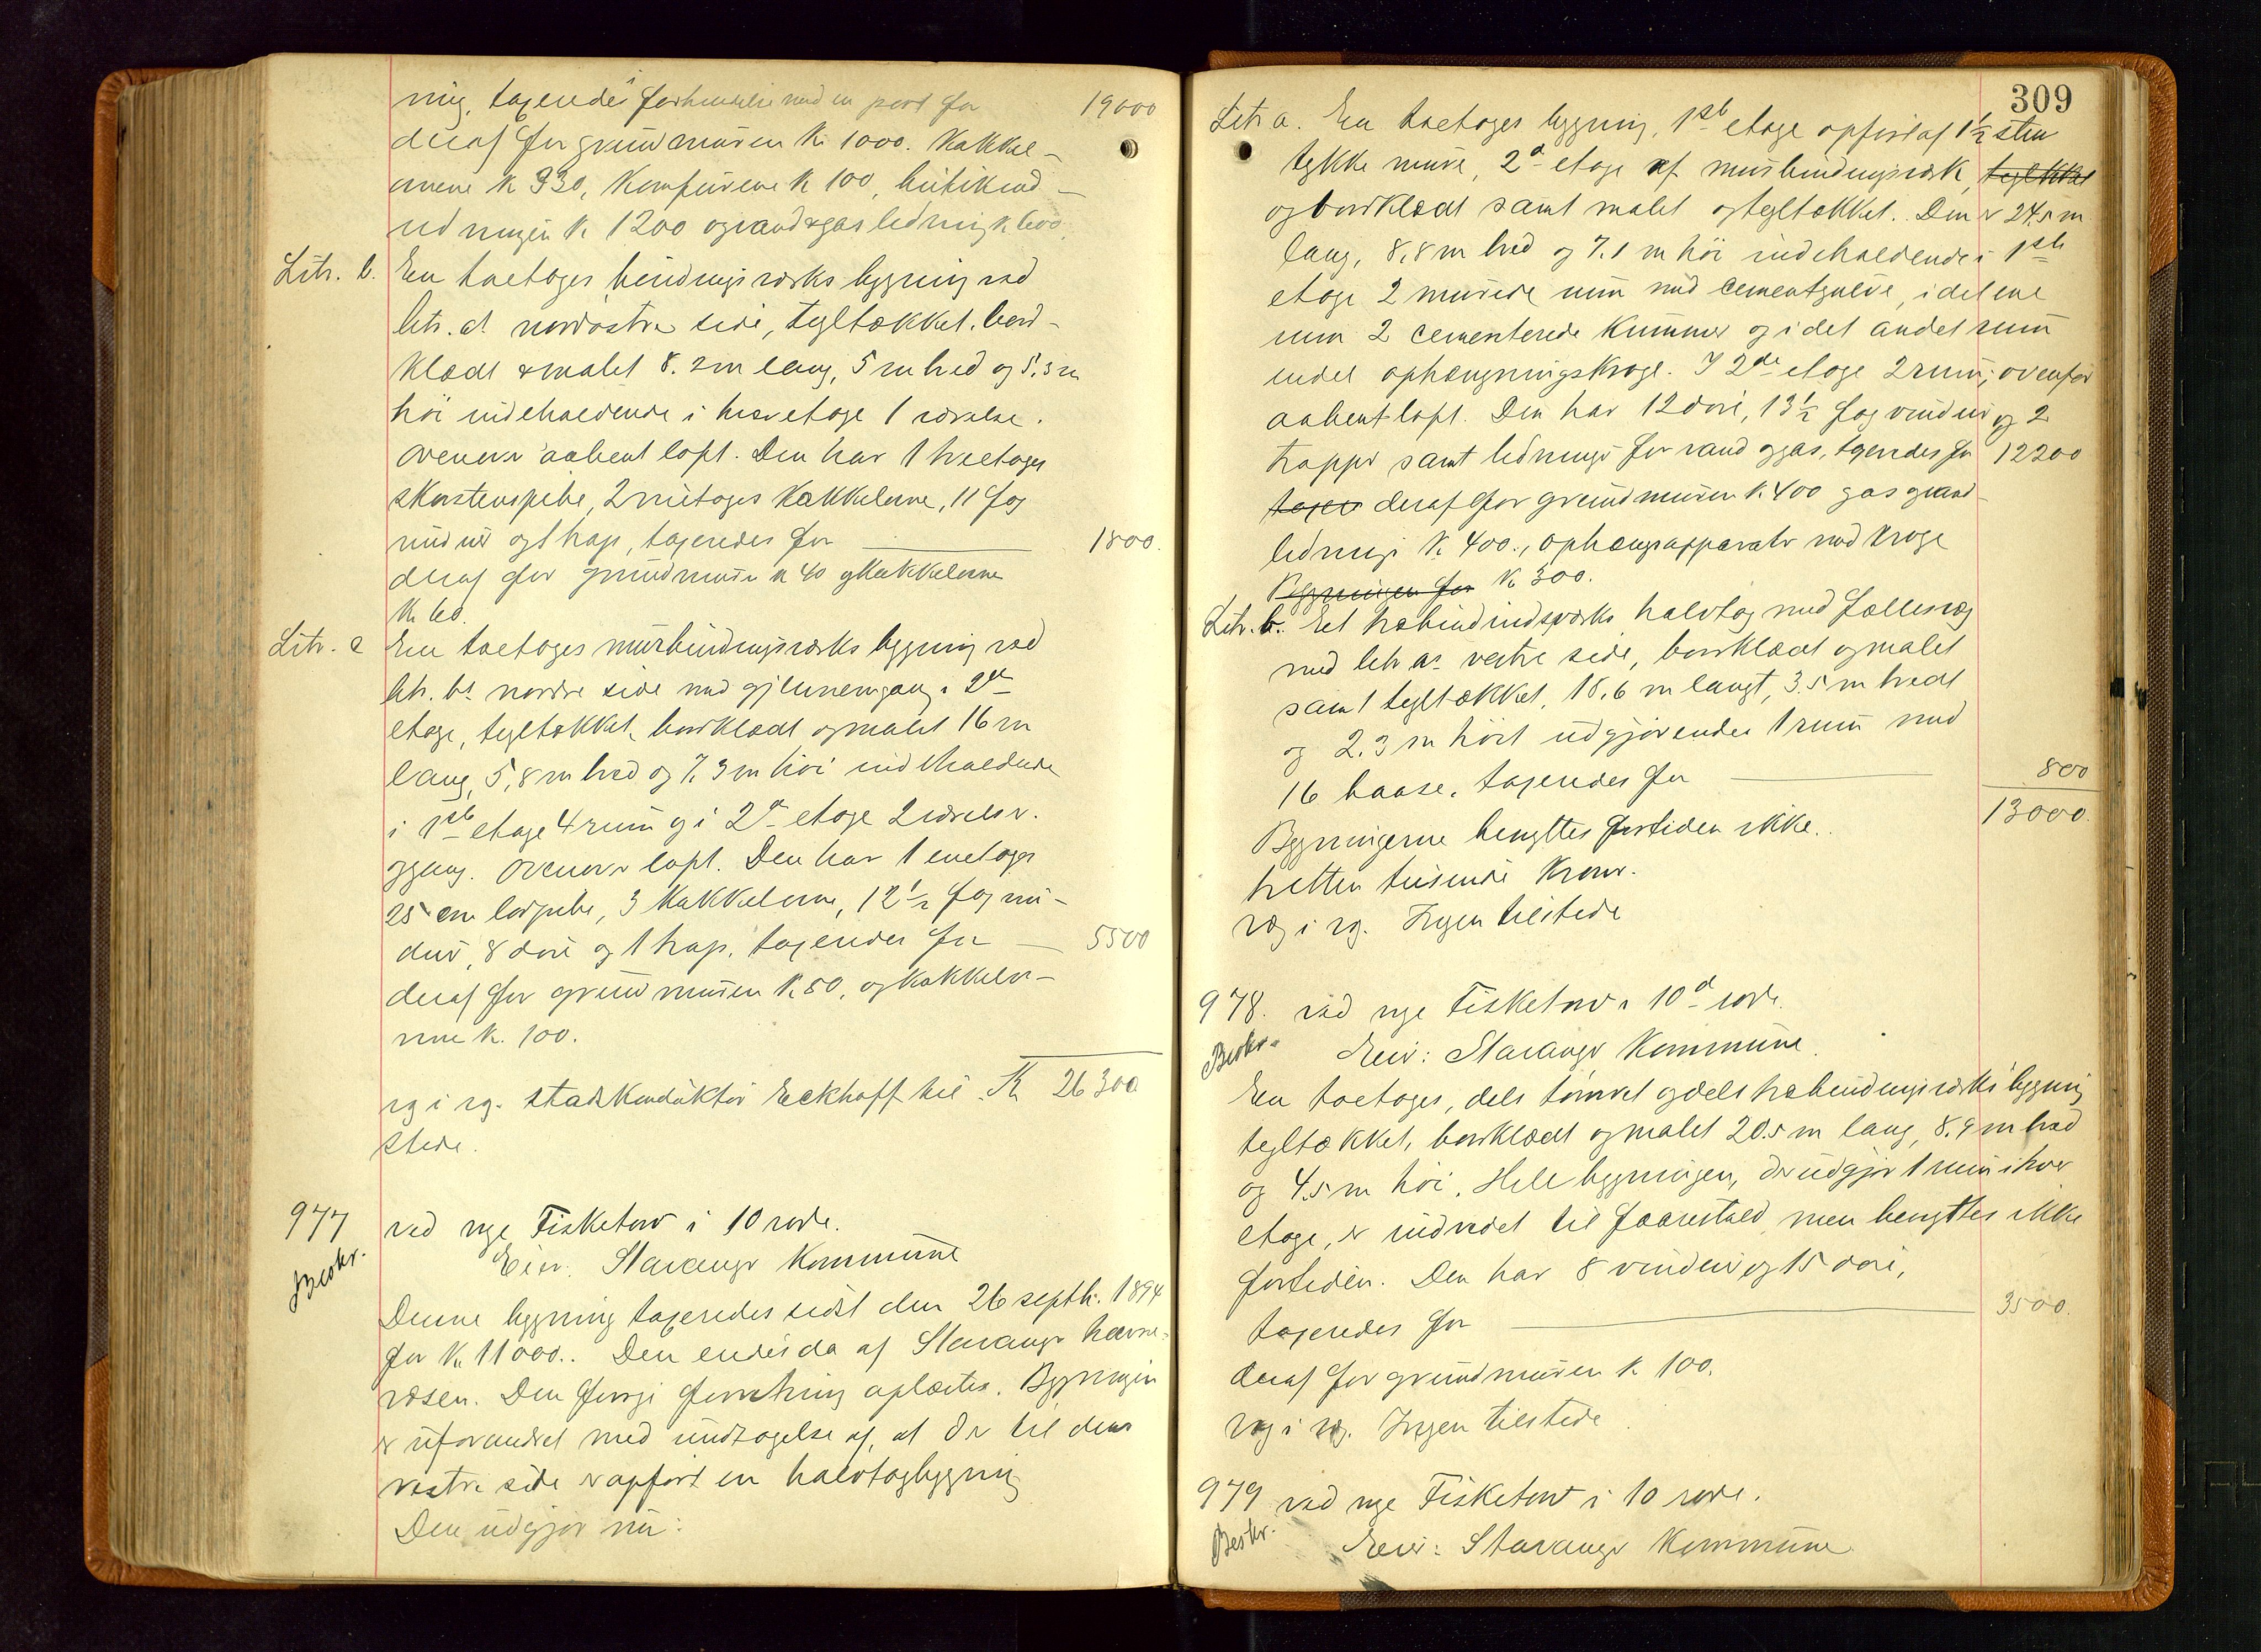 ning, taxeredes i forbindelse med en port for 19000
deraf for grundmuren K 1000. Kakkel-
ovnene K 330, Komfurene K 100, butikind-
redningen K 1200 og vand & gasledning K 600.
Litr. b. En toetages bindingsværks bygning ved
litr. a's nordøstre side, tegltækket, bord-
klædt & malet 8.2 m lang, 5 m bred og 5.3 m
høi indeholdende i hver etage 1 værelse.
Ovenover aabent loft. Den har 1 toetages
skorstenspibe, 2 toetages Kakkelovne, 11 fag
vinduer og 1 trap, taxeredes for 1800.
deraf for grundmuren K 40 og Kakkelovnene
K 60.
Litr. c En toetages murbindingsværks bygning ved
litr. b's nordre side med gjennemgang i 2den
etage, tegltækket, bordklædt og malet 16 m
lang, 5,8 m bred og 7.3 m høi indeholdende
i 1ste etage 4 rum og i 2den etage 2 værelser.
og gang. Ovenover loft. Den har 1 enetages
25 cm lodpibe, 3 Kakkelovne, 12 1/2 fag vin-
duer, 8 døre og 1 trap, taxeredes for 5500
deraf for grundmuren K. 50, og Kakkelov-
nene K. 100.
K 26300
vg i vg. Stadskonduktør Eckhoff til
stede.
977 ved nye Fisketorv i 10 rode.
Beskr. Eier: Stavanger Kommune
Denne bygning taxeredes sidst den 26 septbr. 1894
for K. 11000.. Den eiedes da af Stavanger havne-
væsen. Den forrige forretning oplæstes. Bygningen
er uforandret med undtagelse af, at der til dens
vestre side er opført en halvtagbygning
Den udgjør nu:
309
Litr a. En toetages bygning, 1ste etage opført af 1 1/2 sten
tykke mure, 2den etage af murbindingsværk, tegltækket
og bordklædt samt malet og tegltækket. Den er 24,5 m
lang, 8,8 m bred og 7.1 m høi indeholdende i 1ste
etage 2 murede rum med cementgulve, i det ene
rum 2 cementerede Kummer og i det andet rum
endel ophængningskroge. I 2den etage 2 rum, ovenfor
aabent loft. Den har 12 døre, 13 1/2 fag vinduer og 2
trapper samt ledninger for vand og gas, taxeredes for 12200
taxer deraf for grundmuren K. 400 gas og vand-
ledninger K 400., ophængsapparater med kroge
Bygningen for K 300.
Litr. b. Et træbindingsværks halvtag med fællesvæg
med litr a's vestre side, bordklædt og malet
samt tegltækket, 18,6 m langt, 3.5 m bredt
og 2.3 m høit udgjørendes 1 rum med
16 baase, taxeredes for 800
13000.
Bygningerne benyttes fortiden ikke.
tretten tusende Kroner.
vg i vg. Ingen tilstede
978. ved nye Fisketorv i 10de rode.
Beskr. Eier: Stavanger Kommune.
En toetages, dels tømret og dels træbindingsværks bygning
tegltækket, bordklædt og malet 20.5 m lang, 8.9 m bred
og 4.5 m høi. Hele bygningen, der udgjør 1 rum i hver
etage, er indredet til faarestald, men benyttes ikke
fortiden. Den har 8 vinduer og 15 døre,
taxeredes for 3500.
deraf for grundmuren K 100.
vg i vg. Ingen tilstede.
979 ved nye Fisketorv i 10 rode.
Beskr. Eier: Stavanger Kommune